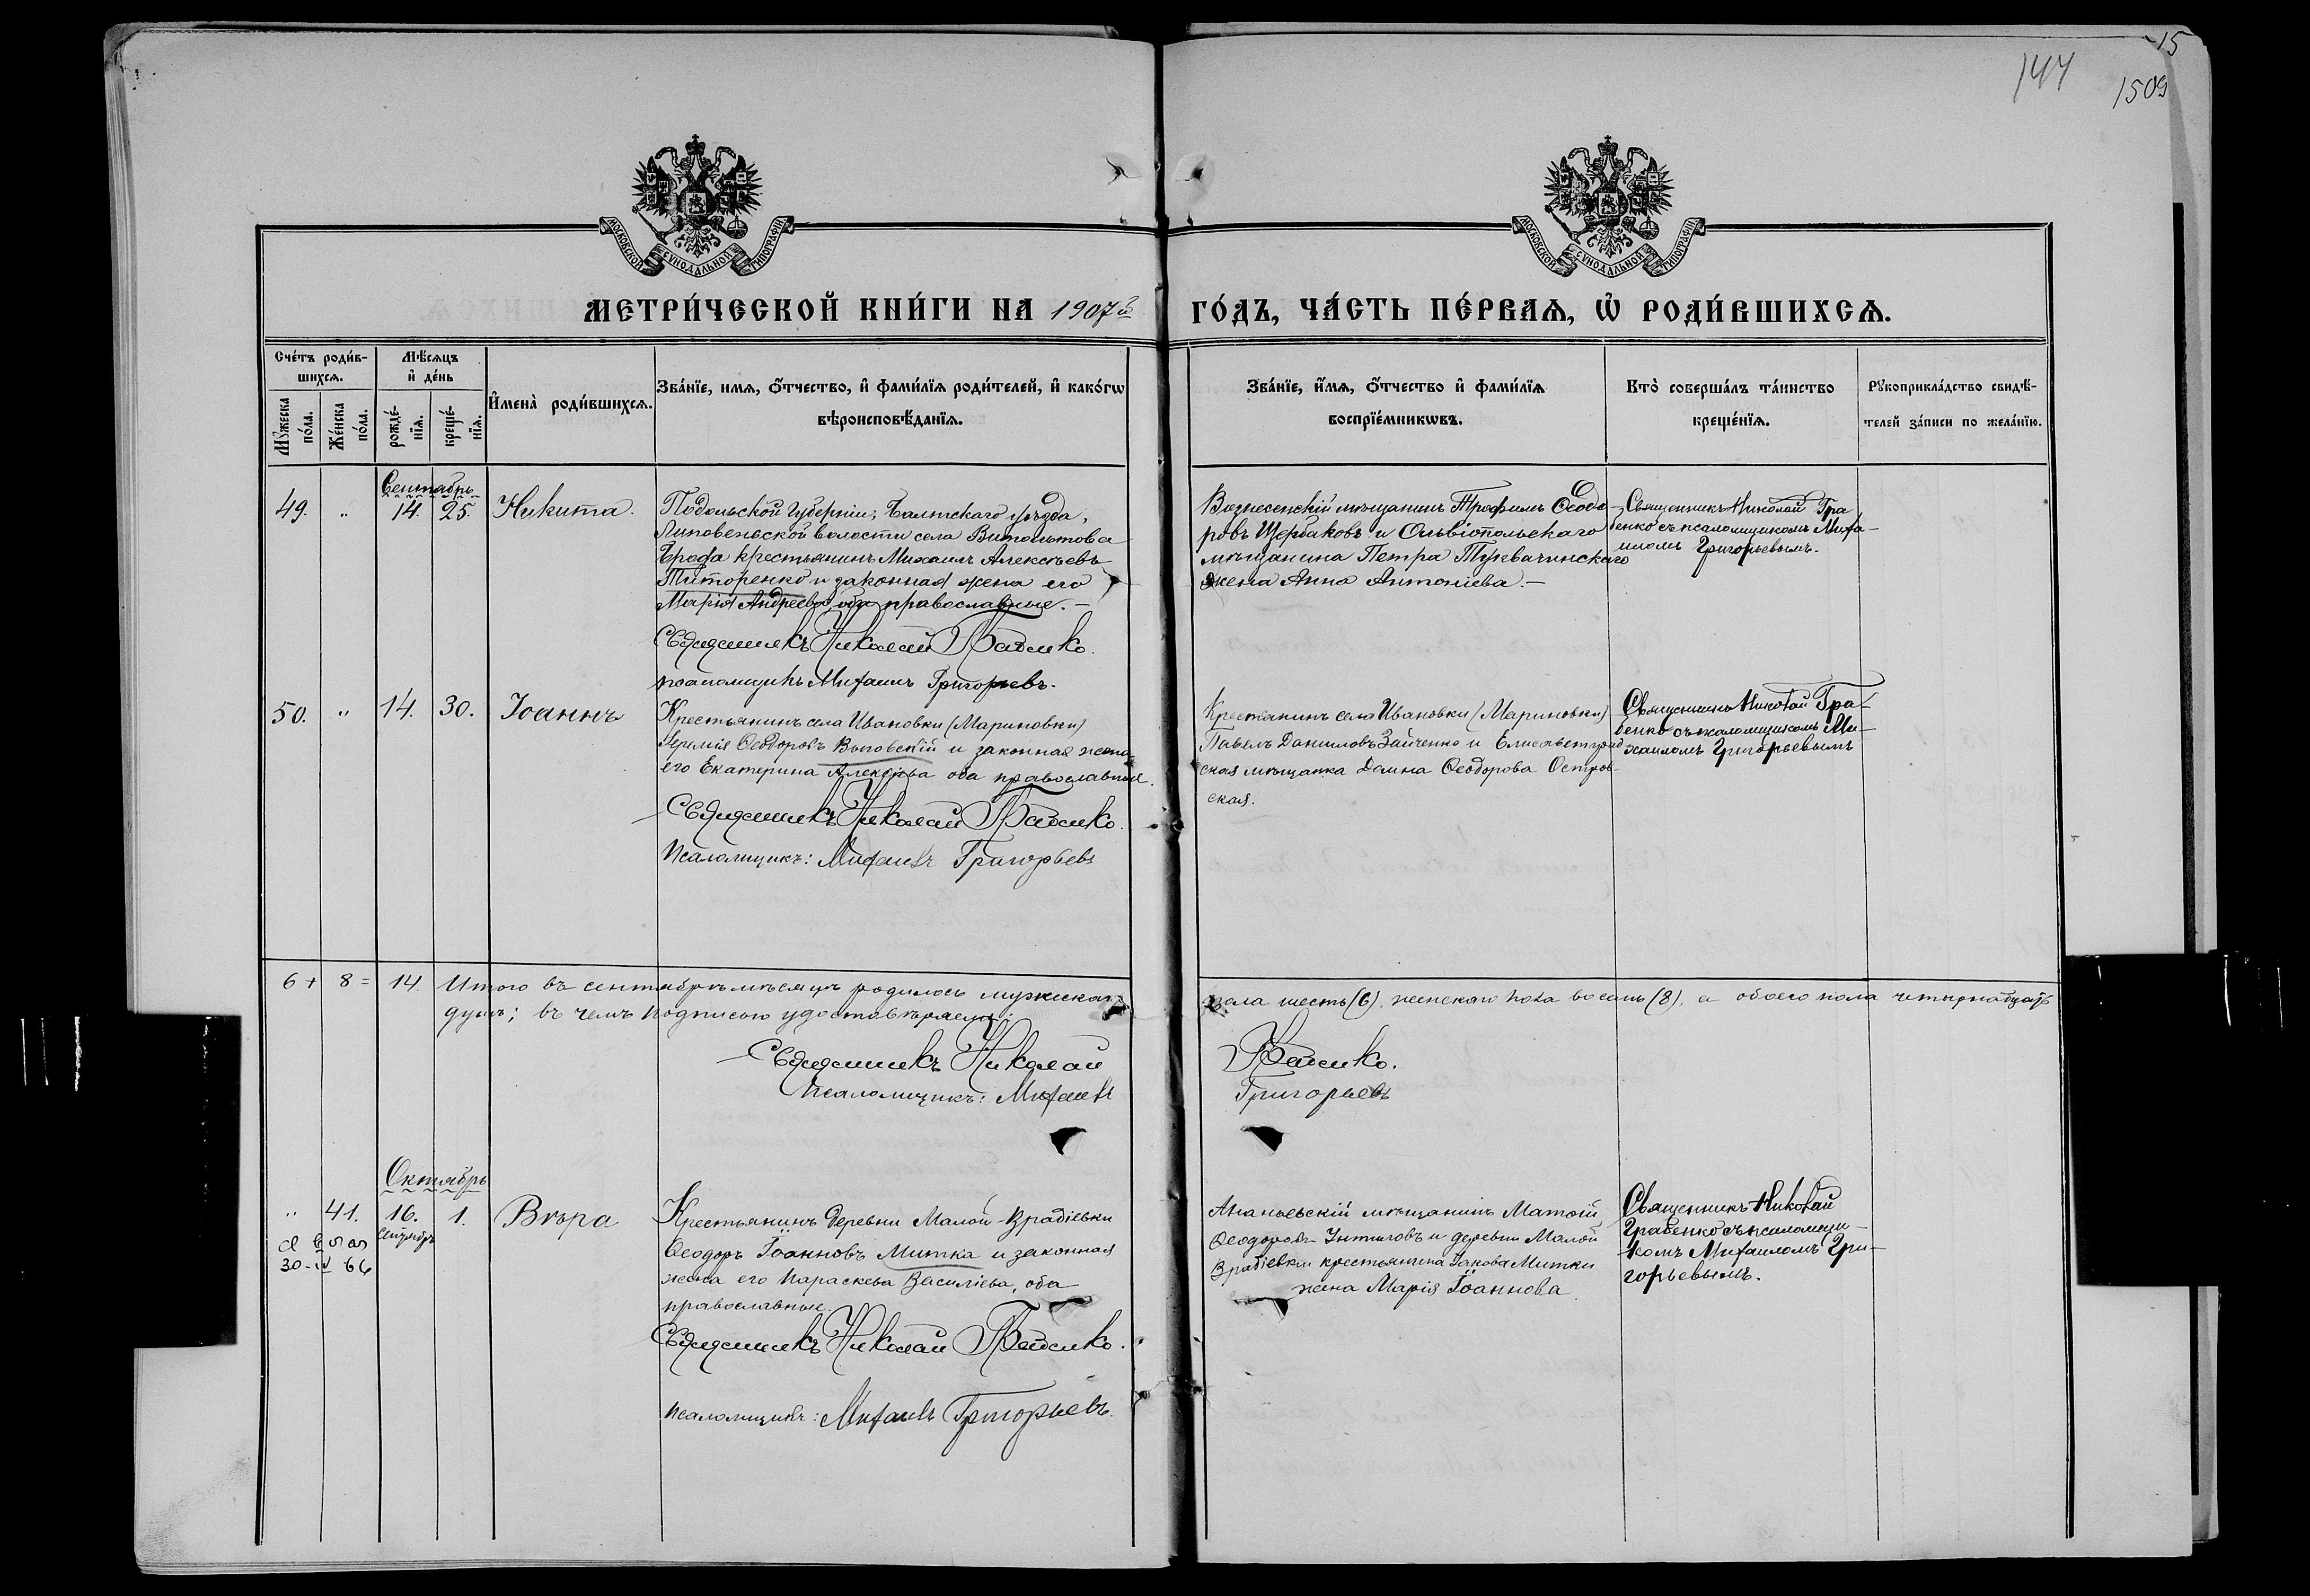 15
147
1509
МОСКОВСКОЙ СѴНОДАЛЬНОЙ ТИПОГРАФІИ
МОСКОВСКОЙ СѴНОДАЛЬНОЙ ТИПОГРАФІИ
МЕТРИ́ЧЕСКОЙ КНИ́ГИ НА 1907й
ГО́ДЪ, ЧА́СТЬ ПЕ́РВАѦ, Ѡ҆ РОДИ́ВШИХСѦ.
Сче́тъ роди́в-
шихсѧ.
Мѣ́сѧцъ
и҆ де́нь
И҆мена̀ роди́вшихсѧ.
Зва́нїе, имѧ, ѻ҆́тчество, и҆ фами́лїѧ роди́телей, и҆ како́гѡ
вѣроисповѣ́данїѧ.
Мꙋ́жеска
по́ла.
Же́нска
по́ла.
рожде́-
нїѧ.
креще́-
нїѧ.
Зва́нїе, и҆́мѧ, ѻ҆́тчество и҆ фами́лїѧ
воспрїе́мникѡвъ.
Кто̀ соверша́лъ та́инство
креще́нїѧ.
Рꙋкоприкла́дство свидѣ́-
телей за́писи по жела́нїю.
Сентябрь
49. „ 14. 25. Никита.
Подольской губерніи, Балтскаго уѣзда,
Липовеньской волости села Витольтова
Брода крестьянинъ Михаилъ Алексѣевъ
Титоренко и законная жена его
Марія Андреева, оба православные.—
Священникъ Николай Грабенко.
псаломщикъ Михаилъ Григорьевъ.
Вознесенскій мѣщанинъ Трофимъ Ѳеодо-
ровъ Щербаковъ и Ольвіопольскаго
мѣщанина Петра Туквачинскаго
жена Анна Антоніева.—
Священникъ Николай Гра
бенко съ псаломщикомъ Миха-
иломъ Григорьевымъ.
50. „ 14. 30. Іоаннъ
Крестьянинъ села Ивановки (Мариновки)
Іеремія Ѳеодоровъ Выговскій и законная жена
его Екатерина Алексіева оба православные.
Священникъ Николай Грабенко.
Псаломщикъ: Михаилъ Григорьевъ
Крестьянинъ села Ивановки (Мариновки)
Павелъ Даниловъ Зайченко и Елисаветград
ская мѣщанка Домна Ѳеодорова Остров-
ская.
Священникъ Николай Гра-
бенко съ псаломщикомъ Ми-
хаиломъ Григорьевымъ
6 + 8 = 14. Итого въ сентябрѣ мѣсяцѣ родилось мужскаго
пола шесть (6), женскаго пола восемь (8), а обоего пола четырнадцать
душъ; въ чемъ подписью удостовѣряемъ:
Священникъ Николай
Грабенко.
Псаломщикъ: Михаилъ
Григорьевъ
Октябрь
„ 41. 16. 1. Вѣра
Сентябрь
30-IV 66
Крестьянинъ деревни Малой-Врадіевки
Ѳеодоръ Іоанновъ Митка и законная
жена его Параскева Василіева, оба
православные.
Священникъ Николай Грабенко.
Псаломщикъ: Михаилъ Григорьевъ.
Ананьевскій мѣщанинъ Матѳій
Ѳеодоровъ и деревни Малой
Врадіевки крестьянина Іакова Митки
жена Марія Іоаннова
Священникъ Николай
Грабенко съ псаломщи-
комъ Михаиломъ Гри-
горьевымъ.